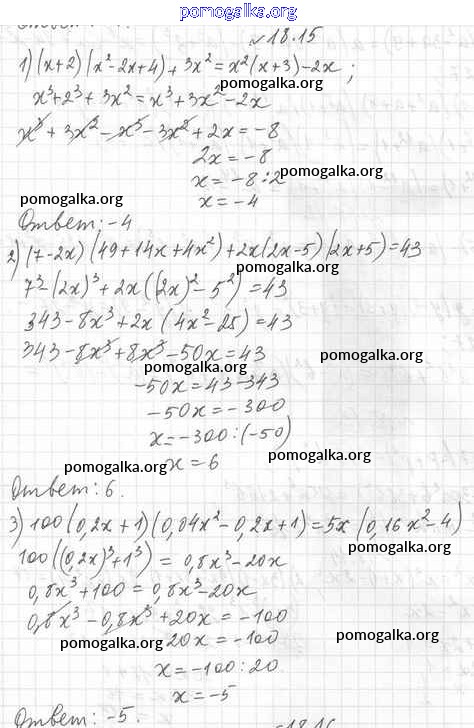 pomogalka.org
№18.15
1) (x+2)(x²-2x+4)+3x²=x²(x+3)-2x;
x³+2³+3x²=x³+3x²-2x
x³+3x²-x³-3x²+2x=-8
2x=-8
pomogalka.org
x=-8:2
pomogalka.org
x=-4
Ответ: -4
2) (7-2x)(49+14x+4x²)+2x(2x-5)(2x+5)=43
pomogalka.org
7³-(2x)³+2x((2x)²-5²)=43
343-8x³+2x(4x²-25)=43
343-8x³+8x³-50x=43
pomogalka.org
pomogalka.org
-50x=43-343
-50x=-300
x=-300:(-50)
pomogalka.org
pomogalka.org
x=6
Ответ: 6.
3) 100(0,2x+1)(0,04x²-0,2x+1)=5x(0,16x²-4)
pomogalka.org
100((0,2x)³+1³)=0,8x³-20x
0,8x³+100=0,8x³-20x
0,8x³-0,8x³+20x=-100
pomogalka.org
20x=-100
pomogalka.org
x=-100:20
x=-5
Ответ: -5.